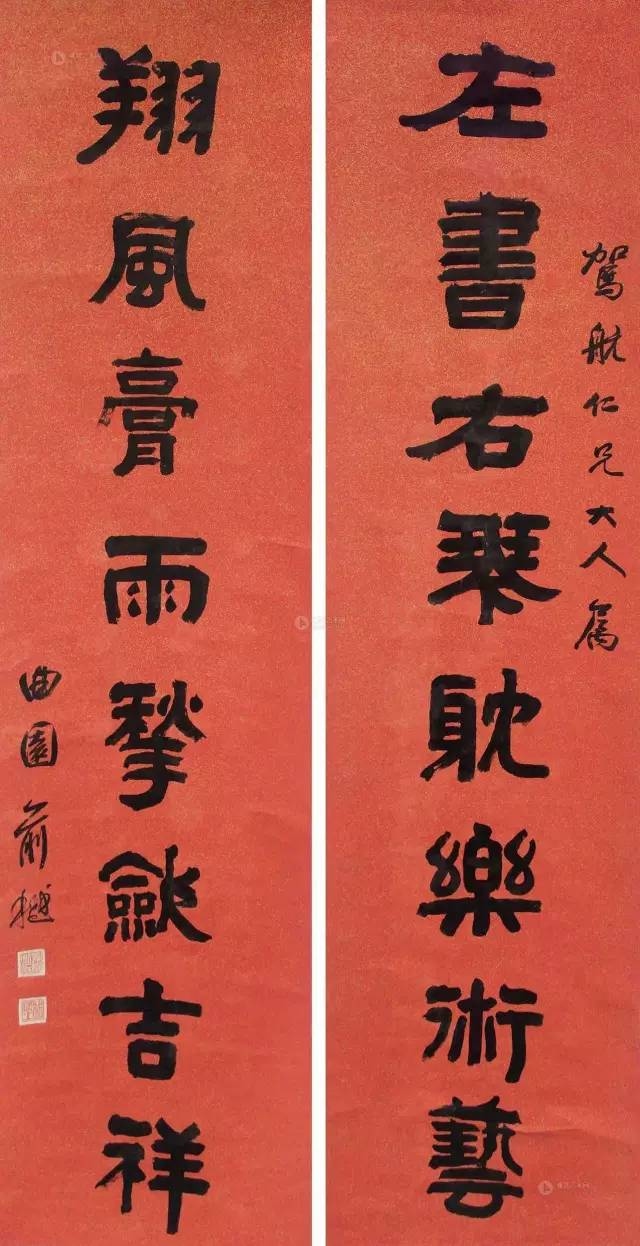 駕航仁兄大人屬
左書右琴耽樂術藝
翔風膏雨揫斂吉祥
曲園俞樾